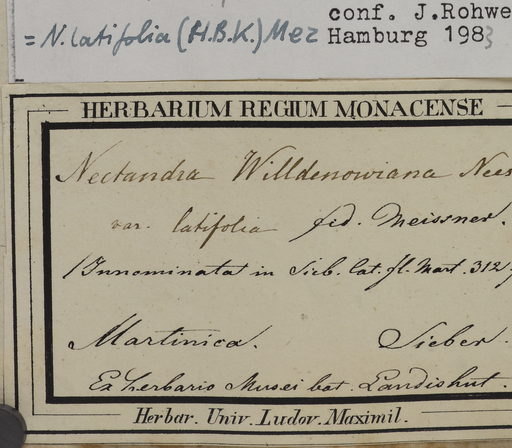 conf. J. Rohwe
= N. latifolia (H.B.K.) Mez Hamburg 1983
HERBARIUM REGIUM MONACENSE
Nectandra Willdenowiana Nees
var. latifolia fid. Meissner.
(Innominata in Sieb. cat. fl. Mart. 312)
Martinica. Sieber.
Ex herbario Musei bot. Landishut.
Herbar. Univ. Ludov. Maximil.